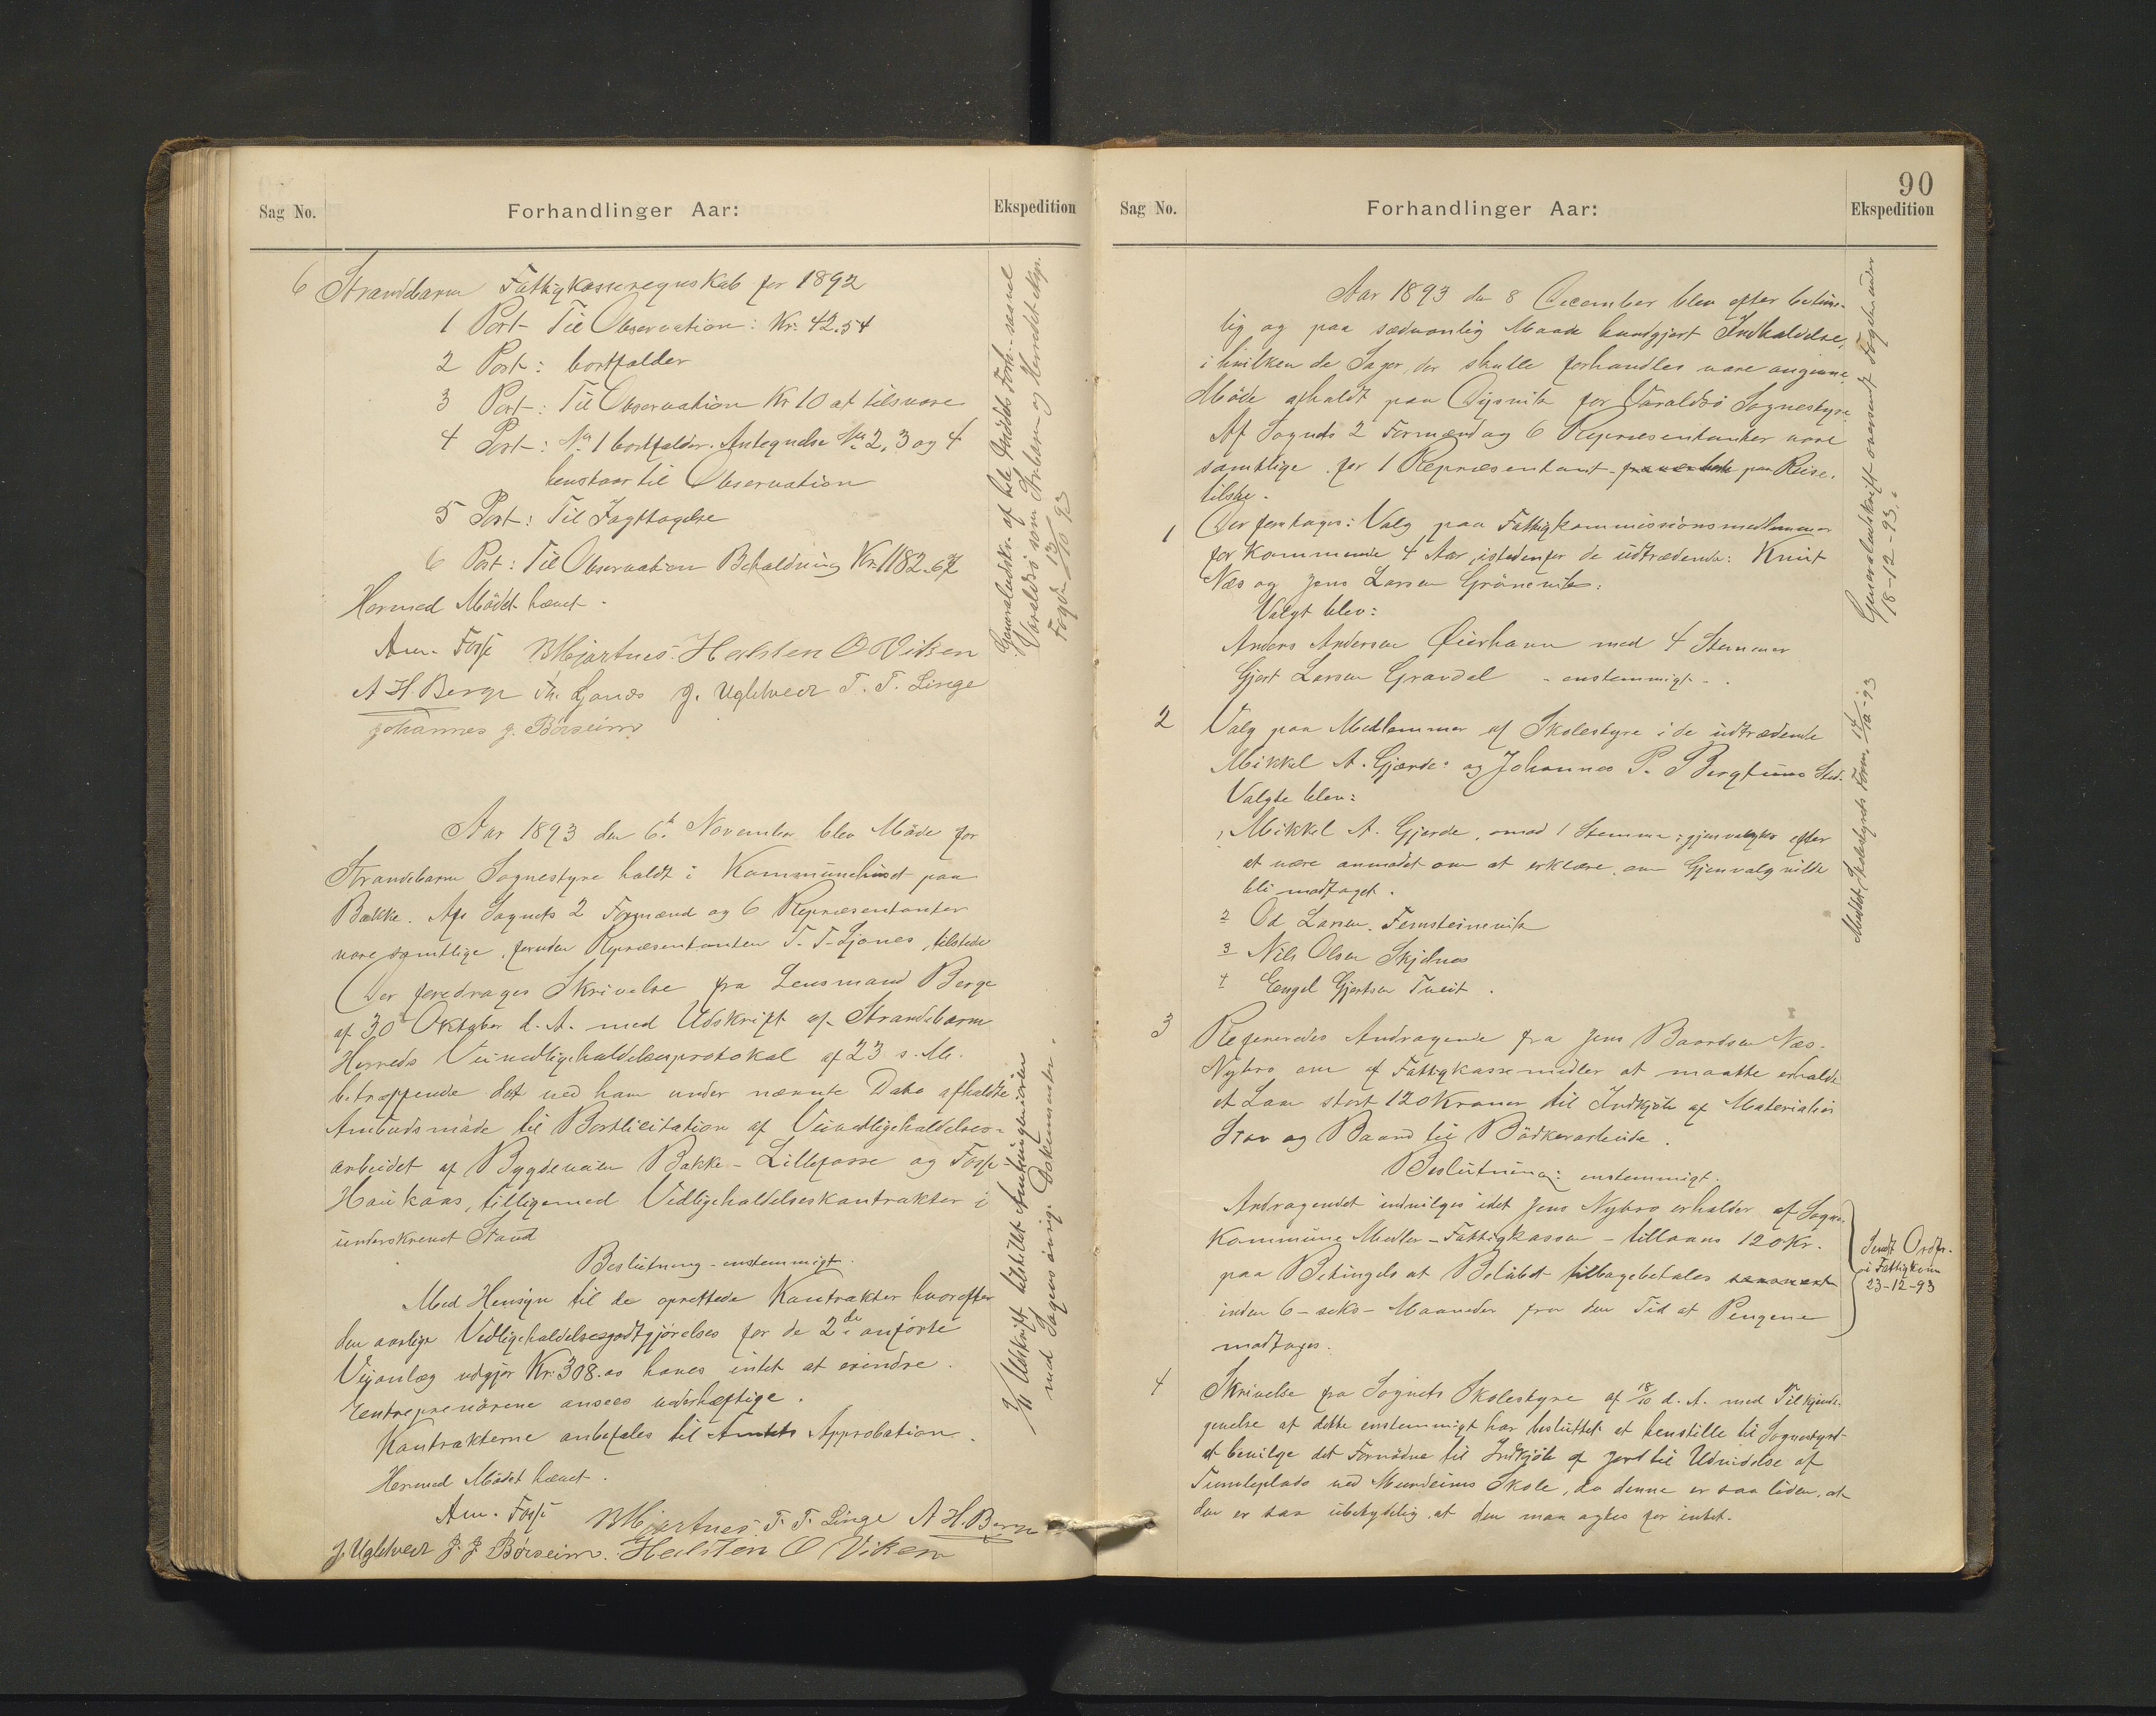 Sag No.
Forhandlinger Aar:
Ekspedition
6 Strandebarm Fattigkasseregnskab for 1892
1 Port - Til Observation: Kr. 42.54
2 Post: bortfalder
3 Post: Til Observation Kr 10 at tilsvare
4 Post: No 1 bortfalder. Antegnelse No 2, 3 og 4
henstaar til Observation
5 Post: Til Iagttagelse
6 Post: Til Observation Beholdning Kr. 1182.67
Hermed Mödet hævet.
Am. Fosse B Mjartnes. Halsten O Viken
A H. Berge Th. Ljones J. Ugletveit T. T. Linge
Johannes J. Börseim
Generaludskr. af hele Mödets Forh.
Varaldsö som Strbarm og Herredet
Foged 13/10 93
Aar 1893 den 6te November blev Möde for
Strandebarm Sognestyre holdt i Kommunehuset paa
Bakke. Af Sognets 2 Formænd og 6 Repræsentanter
vare samtlige, foruden Repræsentanten T. T. Ljones, tilstede
Der foredrages Skrivelse fra Lensmand Berge
af 30 Oktober d. A. med Udskrift af Strandebarm
Herreds Veivedligeholdelsesprotokol af 23 s. M.
betræffende det ved ham under nævnte Dato afholdte
Anbudsmöde til Bortlicitation af Veivedligeholdelses-
arbeidet af Bygdeveien Bakke - Lillefosse og Fosse -
Haukaas, tilligemed Vedligeholdelseskontrakter i
underskrevet Stand
Beslutning - enstemmigt.
Med Hensyn til de oprettede Kontrakter hvorefter
den aarlige Vedligeholdelsesgodtgjörelse for de 2de anförte
Veianlæg udgjör Kr. 308.00 haves intet at erindre.
Entreprenörene ansees vederhæftige.
Kontrakterne anbefales til Amtets Approbation.
Hermed Mödet hævet.
Am. Fosse B Mjartnes. T. T. Linge A H. Berge
J. Ugletveit J. J. Börseim. Halsten O Viken
9/11 Udskrift tilstillet Amtsingeniören
med Sagens övrige Dokumenter.
90
Sag No.
Forhandlinger Aar:
Ekspedition
Aar 1893 den 8 December blev efter betime-
lig og paa sædvanlig Maade kundgjort Indkaldelse,
i hvilken de Sager, der skulle forhandles vare angivne,
Möde afholdt paa for Varaldsö Sognestyre
Af Sognets 2 Formænd og 6 Repræsentanter vare
samtlige, for 1 Repræsentant paa Reise,
tilstede.
1 Der foretages: Valg paa Fattigkommissionsmedlemmer
for kommende 4 Aar, istedenfor de udtrædende: Knut
Næs og Jens Larsen Grönevik:
Valgt blev:
Anders Andersen Öierhavn med 4 Stemmer
Gjert Larsen Gravdal - enstemmigt -
2 Valg paa Medlemmer af Skolestyre i de udtrædende
Mikkel A. Gjerde: og Johannes P. Bergtuns Sted.
Valgte blev:
1 Mikkel A. Gjerde, imod 1 Stemme, gjenvalgtes efter
at være anmodet om at erklære, om Gjenvalg vilde
bli modtaget.
2 Od Larsen Femsteinevik
3 Nils Olsen Skjelnes
4 Engel Gjertsen Tveit.
3 Refereredes Andragende fra Jens Baardsen Næs-
Nybro om af Fattigkassemidler at maatte erholde
et Laan stort 120 Kroner til Indkjöb af Materialier
Stav og Baand til Bödkerarbeide.
Beslutning: enstemmigt.
Andragendet indvilges idet Jens Nybro erholder af Sogne-
kommune Midler - Fattigkassen - tillaans 120 Kr.
paa Betingelse at Belöbet tilbagebetales
inden 6 - seks - Maaneder fra den Tid at Pengene
modtages.
4 Skrivelse fra Sognets Skolestyre af 18/10 d. A. med Tilkjende-
givelse at dette enstemmigt har besluttet at henstille til Sognestyret
at bevilge det Fornödne til Indkjöb af Jord til Udvidelse af
Tumleplads ved Mundeims Skole, da denne er saa liden, at
den er saa ubetydelig, at den maa agtes for intet.
Generaludskrift oversendt Fogden under
18-12-93.
Meddelt Skolestyrets Form.
Sendt Ordf.
i Fattigkom
23-12-93